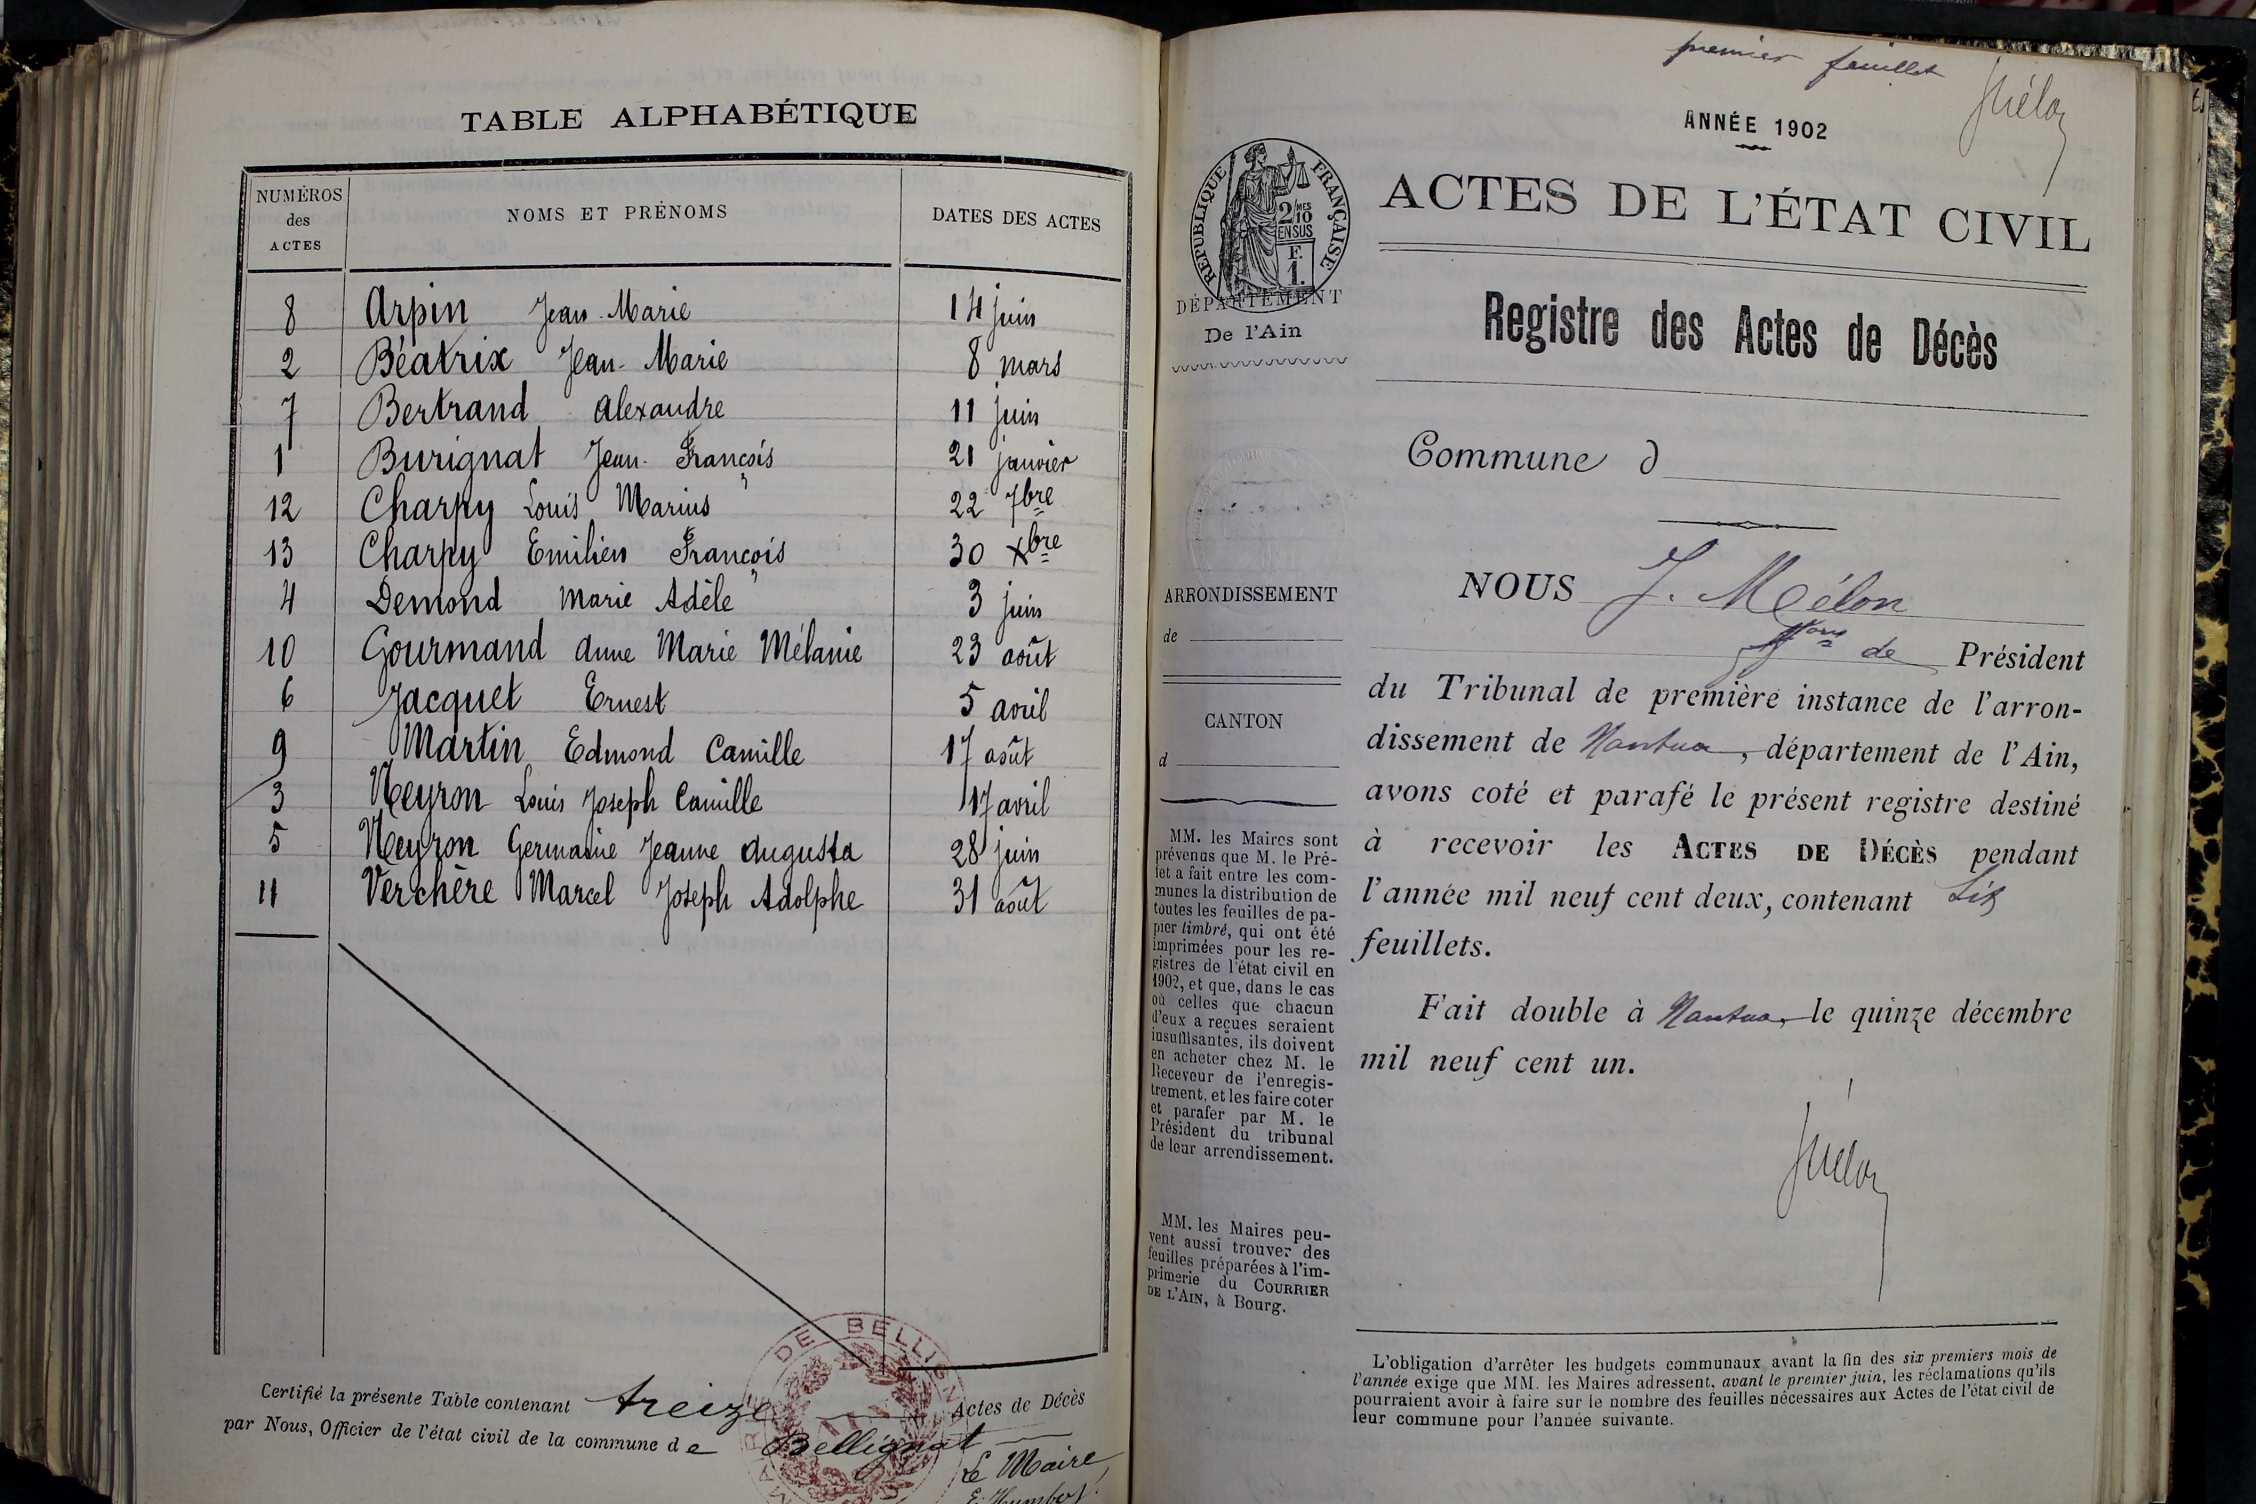 TABLE ALPHABÉTIQUE
NUMÉROS des ACTES NOMS ET PRÉNOMS DATES DES ACTES
8 Arpin Jean-Marie 14 juin
2 Béatrix Jean-Marie 8 mars
7 Bertrand Alexandre 11 juin
1 Burignat Jean-François 21 janvier
12 Charpy Louis Marius 22 7bre
13 Charpy Emilien François 30 Xbre
4 Demond Marie Adèle 3 juin
10 Gourmand Anne Marie Mélanie 23 août
6 Jacquet Ernest 5 avril
9 Martin Edmond Camille 17 août
3 Neyron Louis Joseph Camille 17 avril
5 Neyron Germaine Jeanne Augusta 28 juin
11 Verchère Marcel Joseph Adolphe 31 août
Certifié la présente Table contenant treize Actes de Décès
par Nous, Officier de l'état civil de la commune de Bellignat
Le Maire
E. Humbert
DE BELLIGN
premier feuillet
Mélon
ANNÉE 1902
ACTES DE L'ÉTAT CIVIL
RÉPUBLIQUE FRANÇAISE
2/10 MES
EN SUS
F.
1.
DÉPARTEMENT
De l'Ain
Registre des Actes de Décès
Commune d
ARRONDISSEMENT
de
CANTON
d
MM. les Maires sont
prévenus que M. le Pré-
fet a fait entre les com-
munes la distribution de
toutes les feuilles de pa-
pier timbré, qui ont été
imprimées pour les re-
gistres de l'état civil en
1902, et que, dans le cas
où celles que chacun
d'eux a reçues seraient
insuffisantes, ils doivent
en acheter chez M. le
Receveur de l'enregis-
trement, et les faire coter
et parafer par M. le
Président du tribunal
de leur arrondissement.
MM. les Maires peu-
vent aussi trouver des
feuilles préparées à l'im-
primerie du COURRIER
DE L'AIN, à Bourg.
NOUS J. Mélon
de Président
du Tribunal de première instance de l'arron-
dissement de Nantua, département de l'Ain,
avons coté et parafé le présent registre destiné
à recevoir les ACTES DE DÉCÈS pendant
l'année mil neuf cent deux, contenant Six
feuillets.
Fait double à Nantua, le quinze décembre
mil neuf cent un.
Mélon
L'obligation d'arrêter les budgets communaux avant la fin des six premiers mois de
l'année exige que MM. les Maires adressent, avant le premier juin, les réclamations qu'ils
pourraient avoir à faire sur le nombre des feuilles nécessaires aux Actes de l'état civil de
leur commune pour l'année suivante.